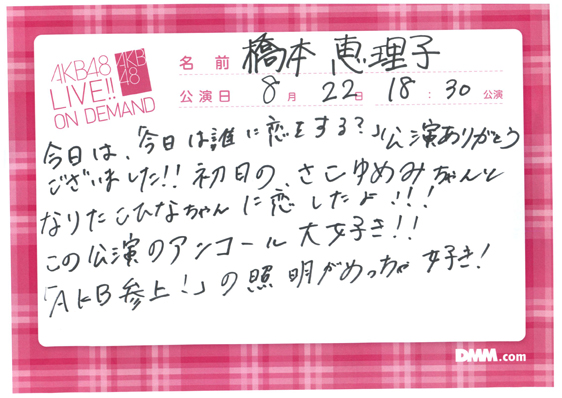 AKB48
LIVE!!
ON DEMAND
AKB
48
名前 橋本 恵理子
公演日 8月 22日 18:30 公演
今日は、今日は誰に恋をする？」公演ありがとう
ございました!! 初日の、さとゆめみちゃんと
なりたこひなちゃんに恋したよ!!!
この公演のアンコール大好き!!
「AKB参上!」の照明がめっちゃ好き!
DMM.com